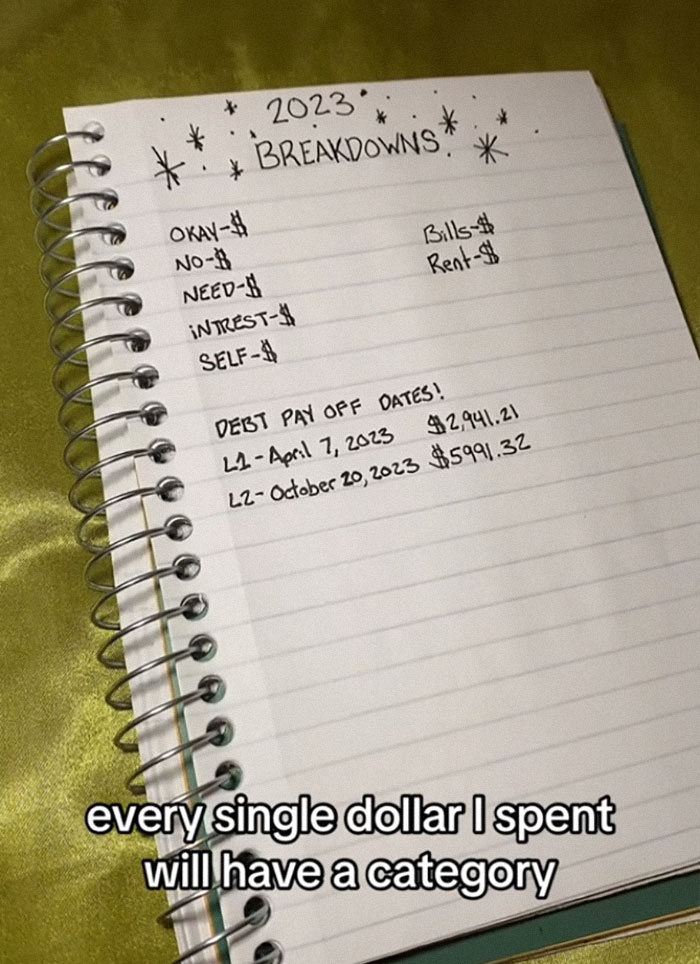 2023
BREAKDOWNS!
OKAY-$
NO-$
NEED-$
iNTREST-$
SELF-$
Bills-$
Rent-$
DEBT PAY OFF DATES!
L1-April 7, 2023 $2,941.21
L2-October 20, 2023 $5991.32
every single dollar I spent
will have a category